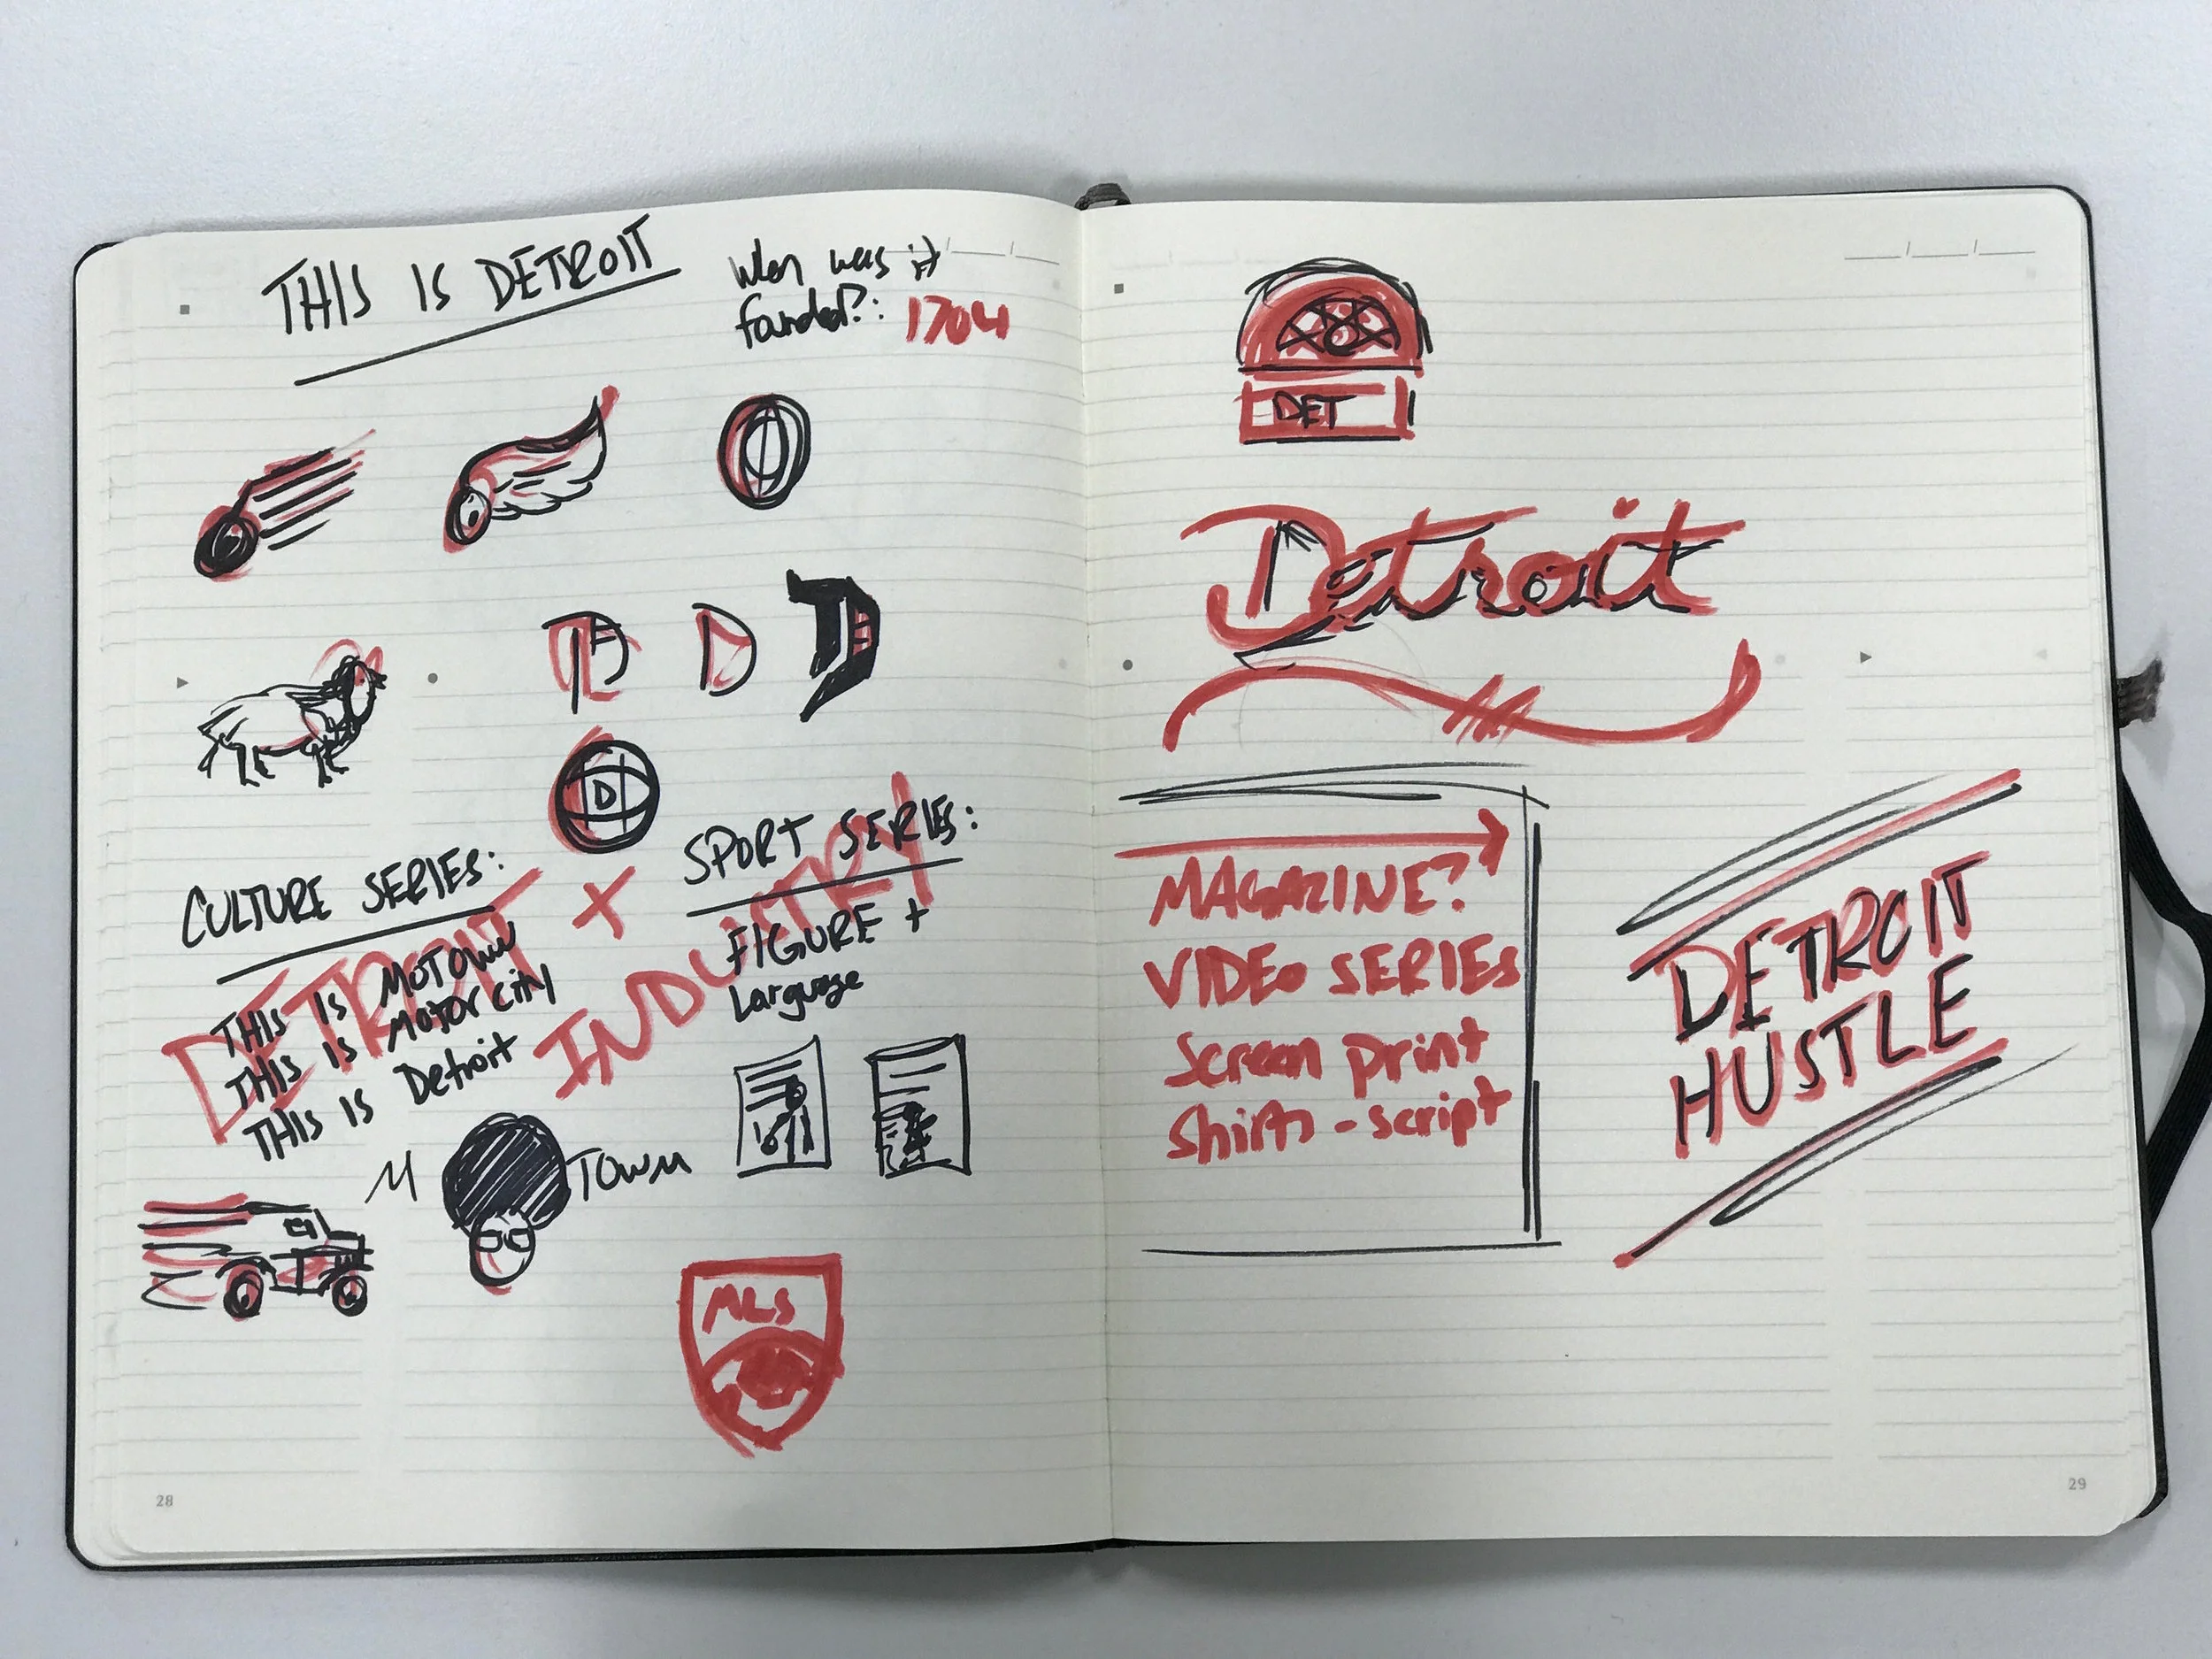 THIS IS DETROIT
When was it
founded?: 1704
D
CULTURE SERIES:
THIS IS MOTOWN
THIS IS MOTOR CITY
THIS IS Detroit
DETROIT +
INDUSTRY
SPORT SERIES:
FIGURE +
Language
M TOWN
MLS
28
DET
Detroit
MAGAZINE?
VIDEO SERIES
Screen print
Shirts - script
DETROIT
HUSTLE
29